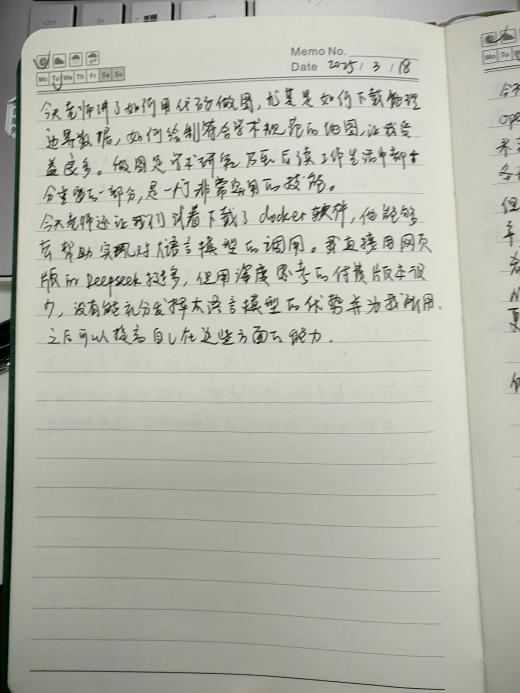 Memo No.
Date 2025 / 3 / 18
Mo Tu We Th Fr Sa Su
今天老师讲了如何用代码做图，尤其是如何下载物理
边界数据，如何绘制符合学术规范的地图，让我受
益良多。做图是学术研究乃至后续工作生活中都十
分重要的一部分，是一门非常实用的技能。
今天老师还让我们试着下载了docker软件，他能够
帮助实现对大语言模型的调用。我直接用网页
版的Deepseek较多，但用深度思考的付费版本很
少，没有能充分发挥大语言模型的优势并为我所用。
之后可以提高自己在这些方面的能力。